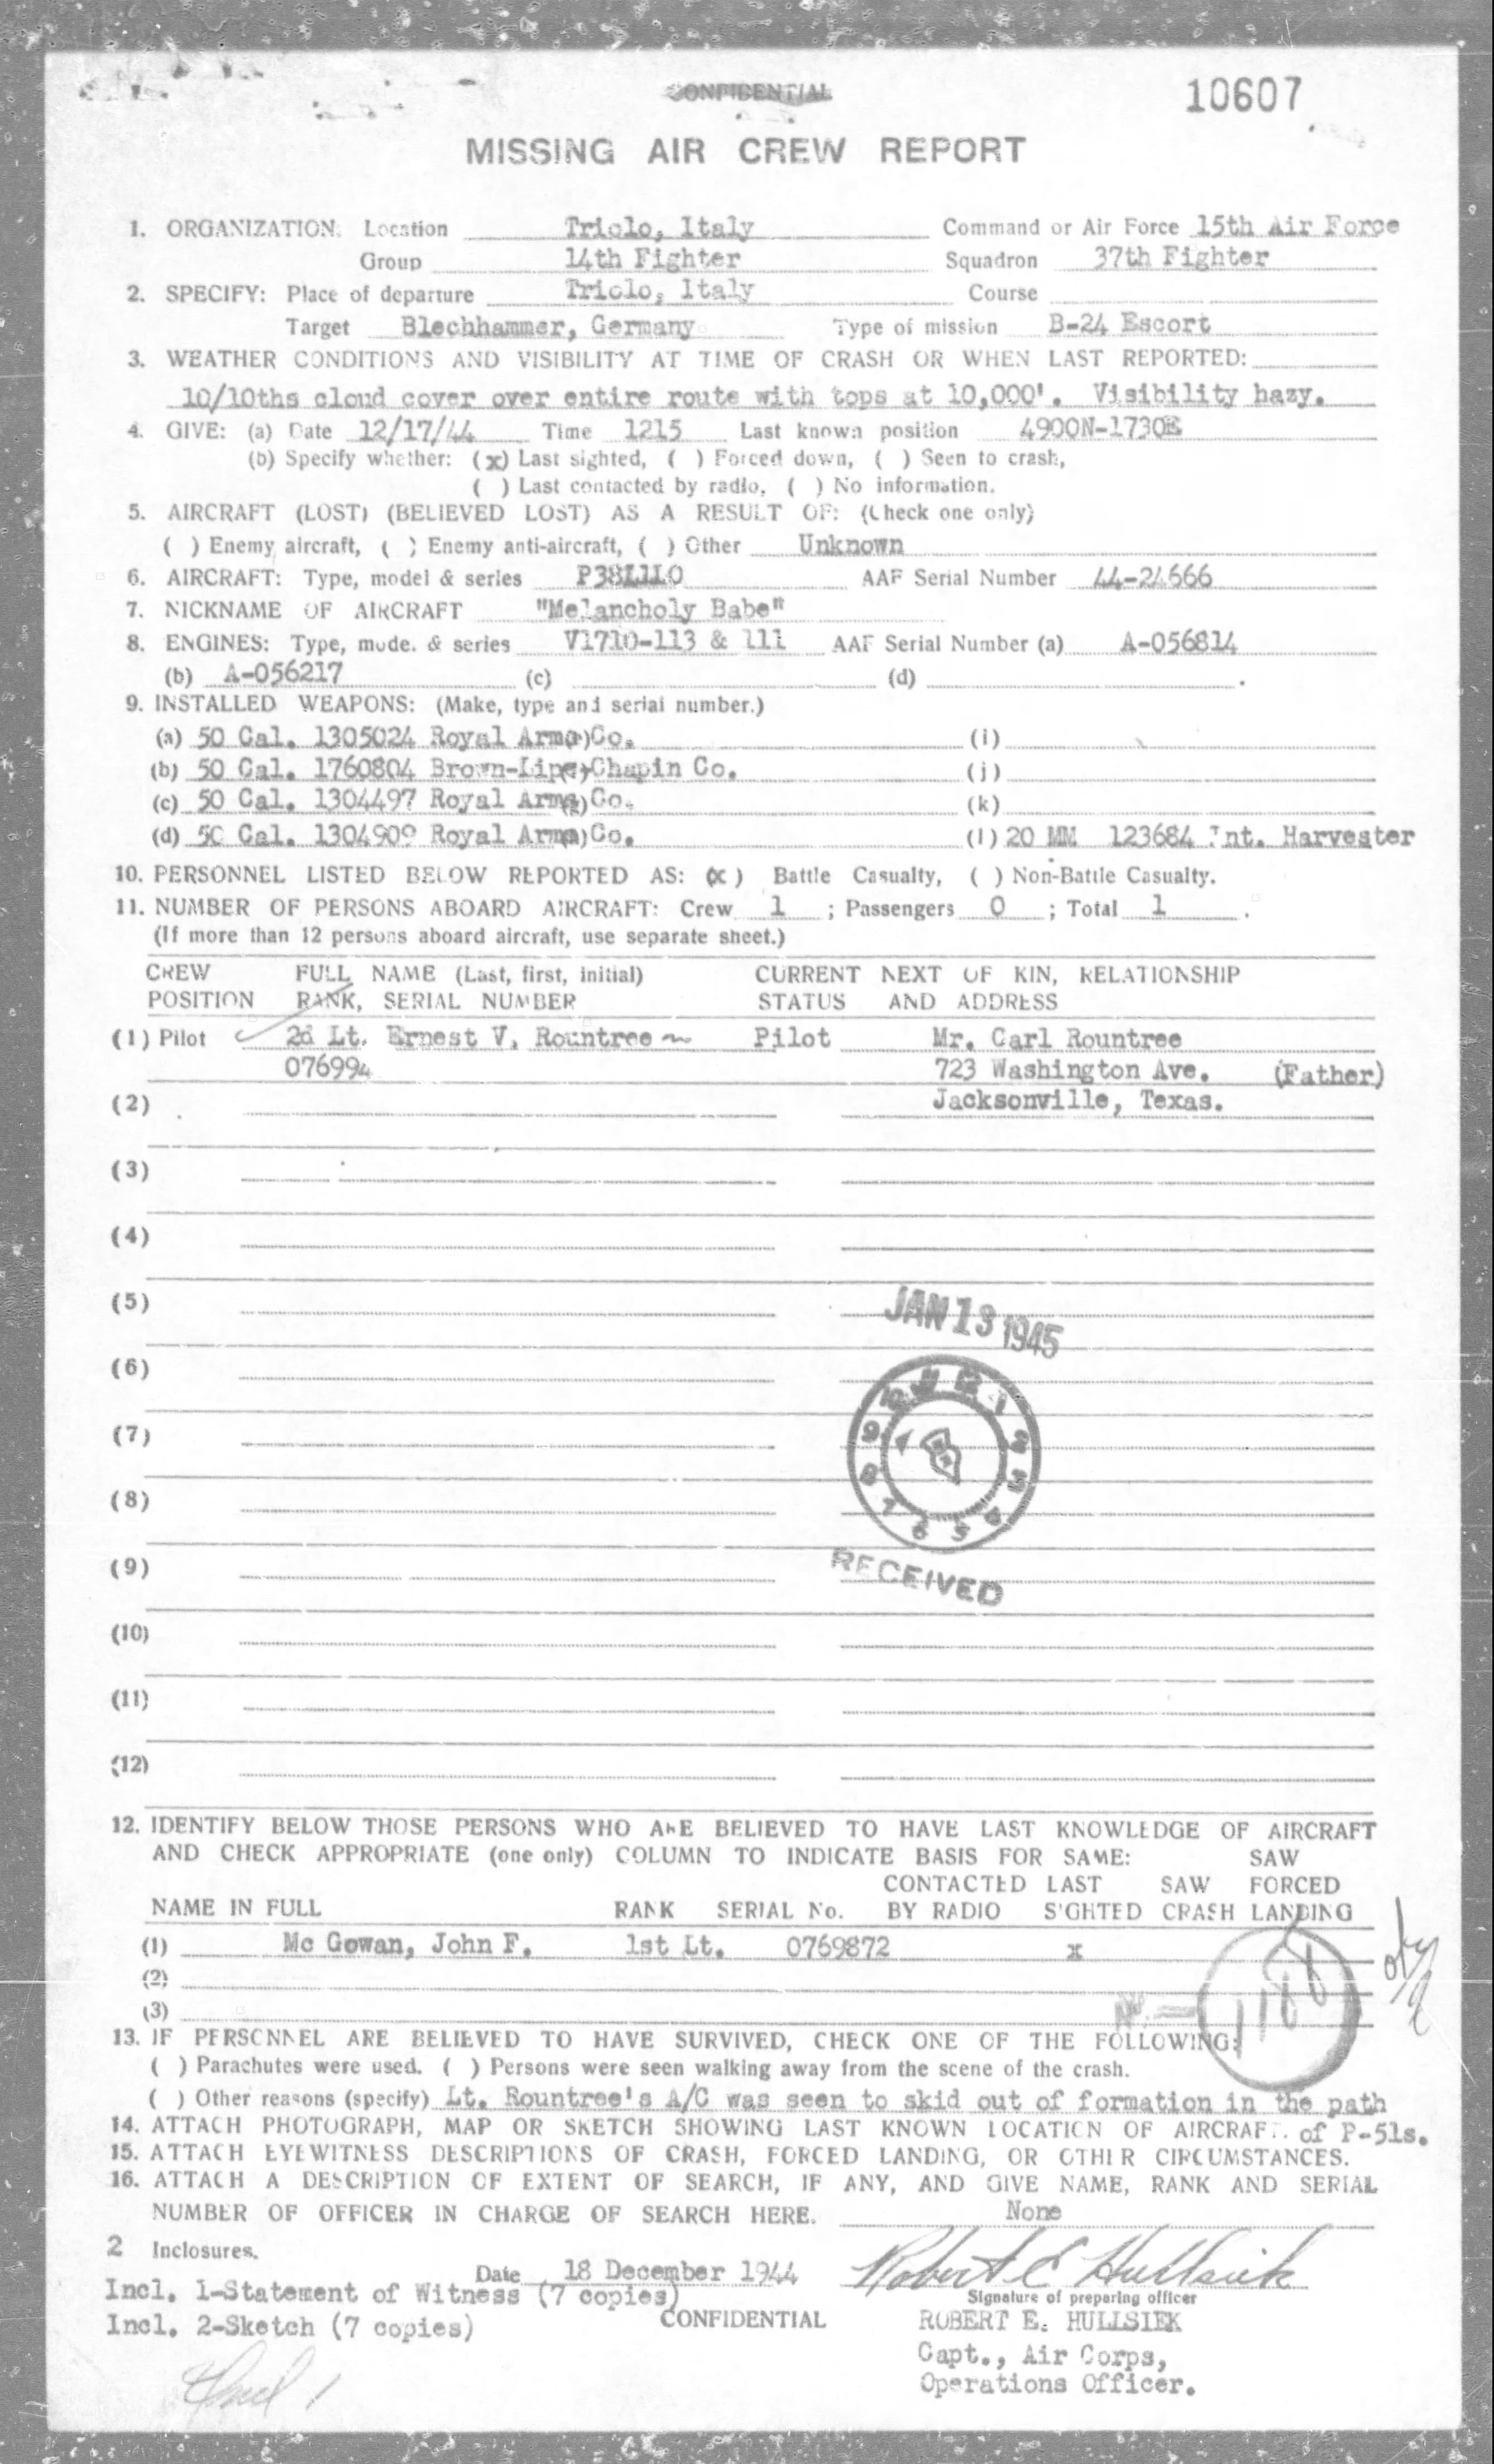 CONFIDENTIAL
10607
MISSING AIR CREW REPORT
1. ORGANIZATION: Location Triolo, Italy Command or Air Force 15th Air Force
Group 14th Fighter Squadron 37th Fighter
2. SPECIFY: Place of departure Triolo, Italy Course
Target Blechhammer, Germany Type of mission B-24 Escort
3. WEATHER CONDITIONS AND VISIBILITY AT TIME OF CRASH OR WHEN LAST REPORTED:
10/10ths cloud cover over entire route with tops at 10,000'. Visibility hazy.
4. GIVE: (a) Date 12/17/44 Time 1215 Last known position 4900N-1730E
(b) Specify whether: (x) Last sighted, ( ) Forced down, ( ) Seen to crash,
( ) Last contacted by radio, ( ) No information.
5. AIRCRAFT (LOST) (BELIEVED LOST) AS A RESULT OF: (Check one only)
( ) Enemy aircraft, ( ) Enemy anti-aircraft, ( ) Other Unknown
6. AIRCRAFT: Type, model & series P38L1LO AAF Serial Number 44-24666
7. NICKNAME OF AIRCRAFT "Melancholy Babe"
8. ENGINES: Type, mode. & series V1710-113 & 111 AAF Serial Number (a) A-056814
(b) A-056217 (c) (d) .
9. INSTALLED WEAPONS: (Make, type and serial number.)
(a) 50 Cal. 1305024 Royal Arms Co. (i)
(b) 50 Cal. 1760804 Brown-Lipe-Chapin Co. (j)
(c) 50 Cal. 1304497 Royal Arms Co. (k)
(d) 50 Cal. 1304909 Royal Arms Co. (l) 20 MM 123684 Int. Harvester
10. PERSONNEL LISTED BELOW REPORTED AS: (x) Battle Casualty, ( ) Non-Battle Casualty.
11. NUMBER OF PERSONS ABOARD AIRCRAFT: Crew 1 ; Passengers 0 ; Total 1 .
(If more than 12 persons aboard aircraft, use separate sheet.)
CREW FULL NAME (Last, first, initial) CURRENT NEXT OF KIN, RELATIONSHIP
POSITION RANK, SERIAL NUMBER STATUS AND ADDRESS
(1) Pilot 2d Lt. Ernest V. Rountree Pilot Mr. Carl Rountree
076994 723 Washington Ave. (Father)
(2) Jacksonville, Texas.
(3)
(4)
(5)
JAN 13 1945
(6)
(7)
(8)
(9)
RECEIVED
(10)
(11)
(12)
12. IDENTIFY BELOW THOSE PERSONS WHO ARE BELIEVED TO HAVE LAST KNOWLEDGE OF AIRCRAFT
AND CHECK APPROPRIATE (one only) COLUMN TO INDICATE BASIS FOR SAME: SAW
CONTACTED LAST SAW FORCED
NAME IN FULL RANK SERIAL No. BY RADIO SIGHTED CRASH LANDING
(1) Mc Gowan, John F. 1st Lt. 0769872 x
(2)
(3)
13. IF PERSONNEL ARE BELIEVED TO HAVE SURVIVED, CHECK ONE OF THE FOLLOWING:
( ) Parachutes were used. ( ) Persons were seen walking away from the scene of the crash.
( ) Other reasons (specify) Lt. Rountree's A/C was seen to skid out of formation in the path
14. ATTACH PHOTOGRAPH, MAP OR SKETCH SHOWING LAST KNOWN LOCATION OF AIRCRAFT. of P-51s.
15. ATTACH EYEWITNESS DESCRIPTIONS OF CRASH, FORCED LANDING, OR OTHER CIRCUMSTANCES.
16. ATTACH A DESCRIPTION OF EXTENT OF SEARCH, IF ANY, AND GIVE NAME, RANK AND SERIAL
NUMBER OF OFFICER IN CHARGE OF SEARCH HERE. None
2 Inclosures.
Date 18 December 1944 Robert E Hullsiek
Incl. 1-Statement of Witness (7 copies) Signature of preparing officer
Incl. 2-Sketch (7 copies) CONFIDENTIAL ROBERT E. HULLSIEK
Capt., Air Corps,
Operations Officer.